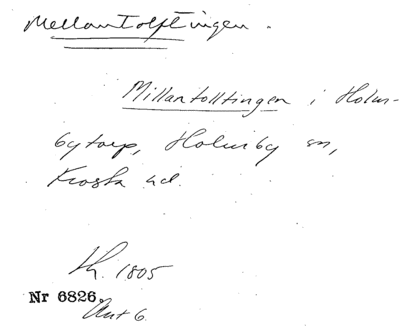 Mellantolftingen.
Millantolltingen i Holm-
bytorp, Holmby sn,
Frosta hd.
Ch. 1805
Nr 6826.
Akt 6.